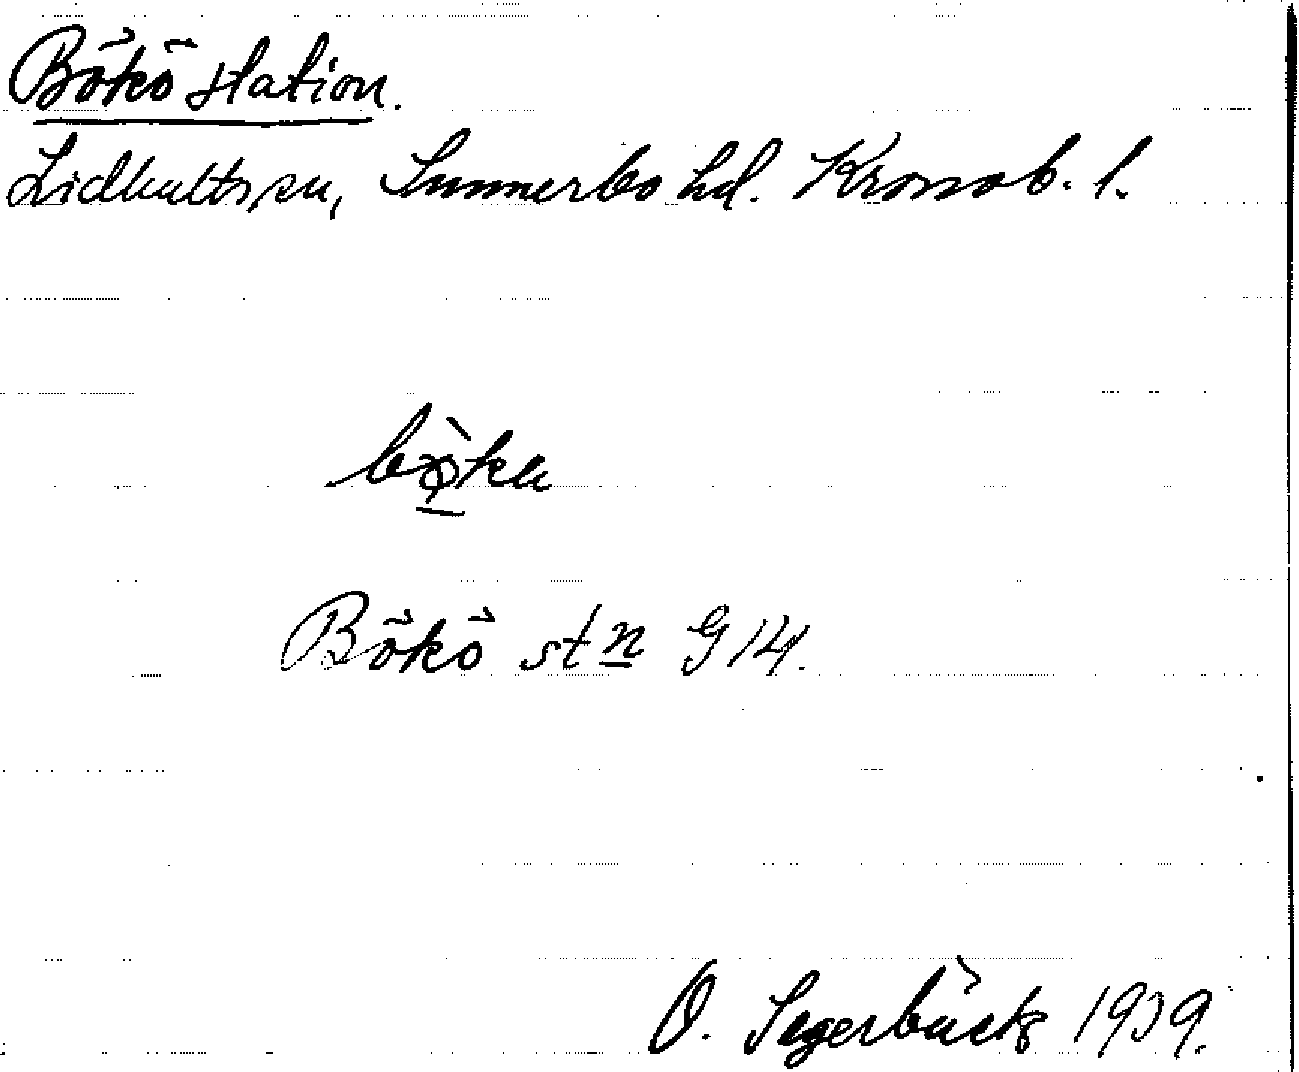 Bökö station.
Lidhults sn, Sunnerbo hd. Kronob. l.
bø̀ka
Bökö stn G 14.
O. Segerbäck 1939.